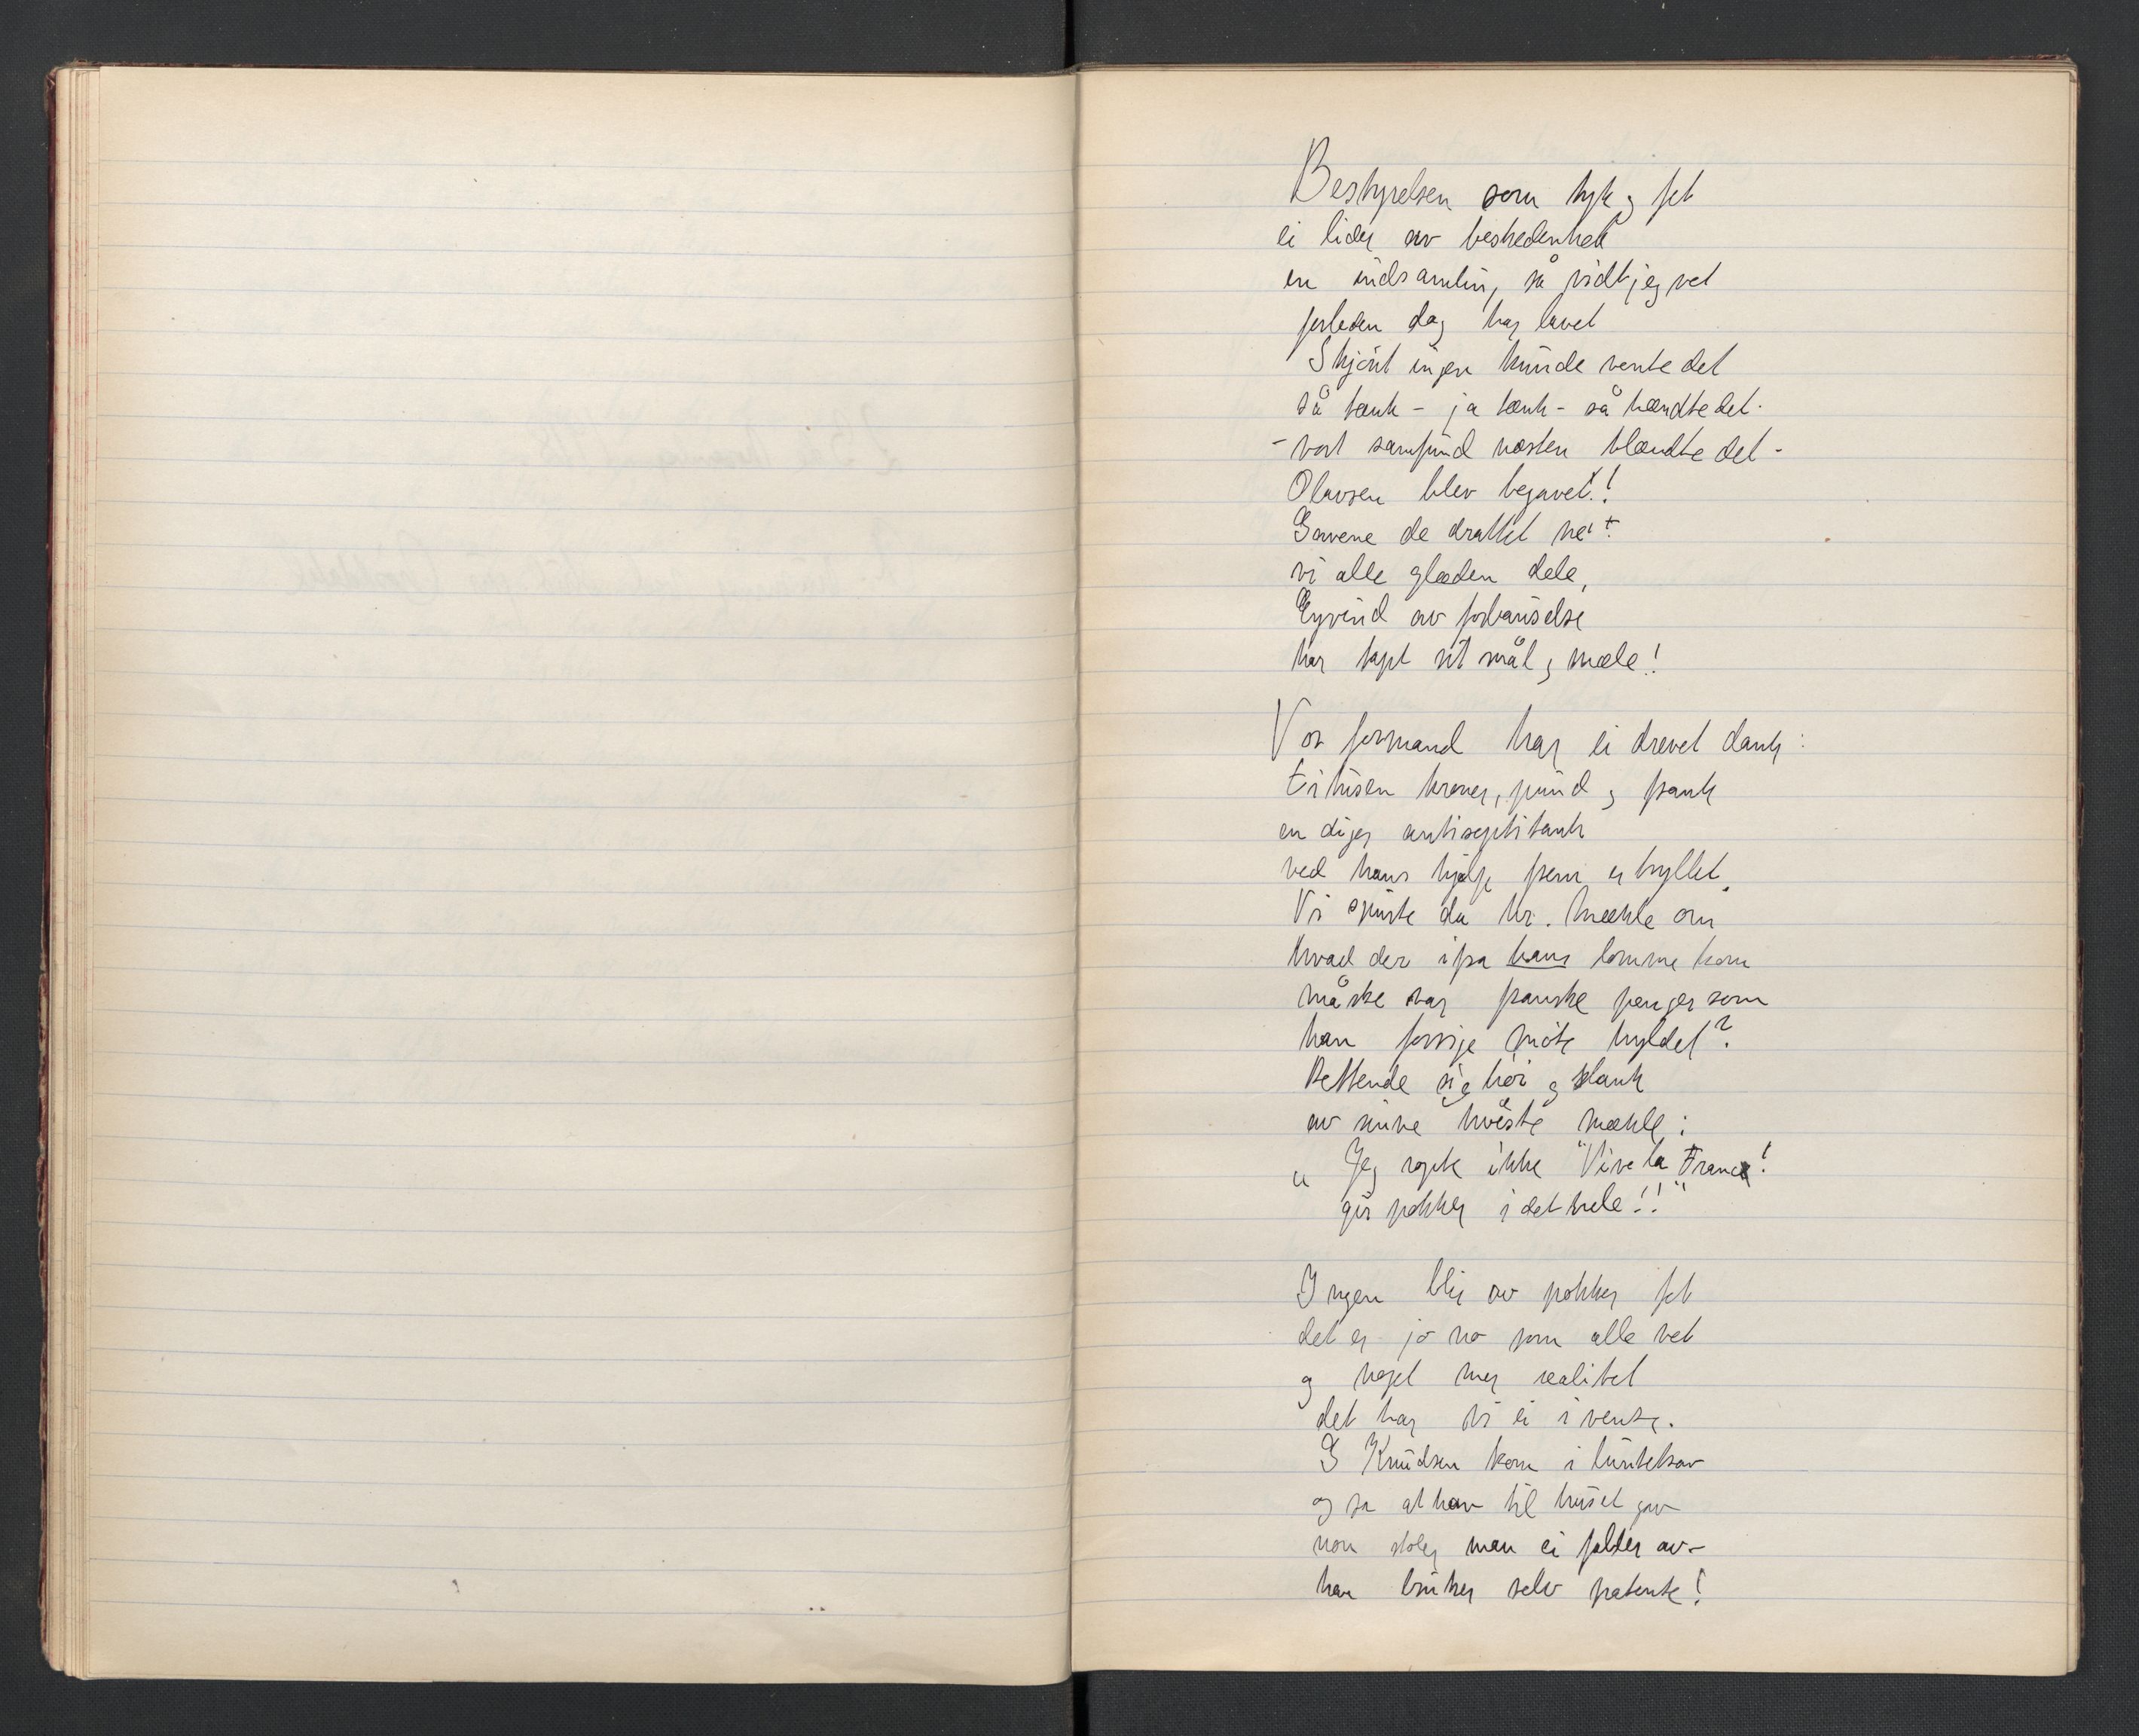 Bestyrelsen som tyk og fet
ei lider av beskedenhet
en indsamling så vidt jeg vet
forleden dag har lavet
Skjönt ingen kunde vente det
så tænk - ja tænk - så hændte det -
- vort samfund næsten blændte det -
Olavsen blev begavet!!
Gavene de drattet ned
vi alle glæden dele,
Eyvind av forbauselse
har tapt sit mål og mæle!
Vor formand har ei drevet dank:
titusen kroner, pund og frank
en diger
ved hans hjælp frem er tryllet.
Vi spurte da hr. Mæhle om
hvad der ifra hans lomme kom
måske var franske penger som
han forrige möte hyldet?
Rettende sig höi og slank
av sinne hvæste Mæhle:
„Jeg ropte ikke "Vive la France!
gir pokker i det hele!!"
Ingen blir av pokker fet
det er jo no som alle vet
og noget mer realitet
det har vi ei i vente.
G Knudsen kom i
og sa at han til huset gav
non stoler man ei falder av -
han bruker selv patente!